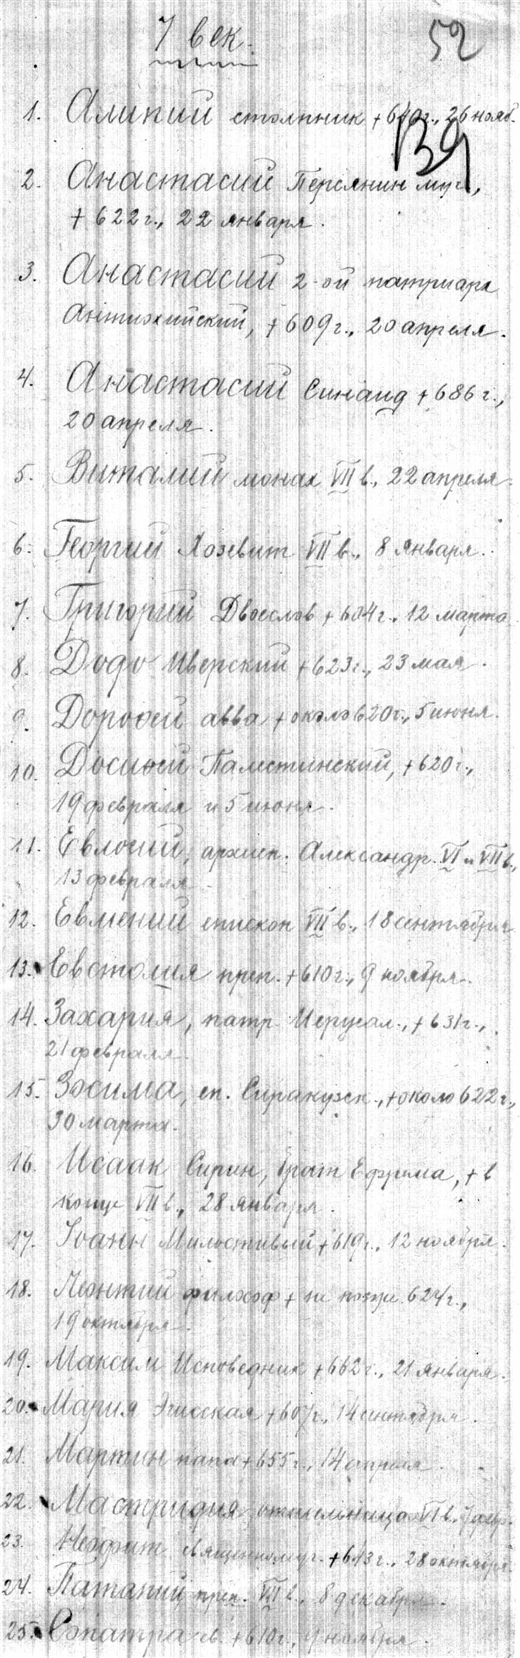 7 век.
52
139
1. Алипий столпник +640г., 26 нояб.
2. Анастасий Персянин муч.,
+ 622г., 22 января.
3. Анастасий 2-ой патриарх
Антиохийский, +609г., 20 апреля.
4. Анастасий Синаид +686г.,
20 апреля.
5. Виталий монах VII в., 22 апреля.
6. Георгий Хозевит VII в., 8 января.
7. Григорий Двоеслов +604г., 12 марта
8. Додо Иверский +623г., 23 мая.
9. Дорофей авва + около 620г., 5 июня.
10. Досифей Палестинский, +620г.,
19 февраля и 5 июня.
11. Евлогий, архиеп. Александр. VI и VII в.,
13 февраля.
12. Евмений епископ VII в., 18 сентября
13. Евстолия преп. +610г., 9 ноября.
14. Захария, патр. Иерусал., +631г.,
21 февраля.
15. Зосима, еп. Сиракузск., + около 622г.,
30 марта.
16. Исаак Сирин, брат Ефрема, + в
конце VII в., 28 января.
17. Иоанн Милостивый +619г., 12 ноября.
18. Леонтий философ + не позже 624г.,
19 октября.
19. Максим Исповедник +662г., 21 января.
20. Мария +607г., 14 сентября.
21. Мартин папа +655г., 14 апреля.
22. Мастридия отшельница VI в., 7 февр.
23. Неофит священномуч. +613г., 28 октября.
24. Патапий преп. VII в., 8 декабря.
25. Сопатра +610г., 9 ноября.